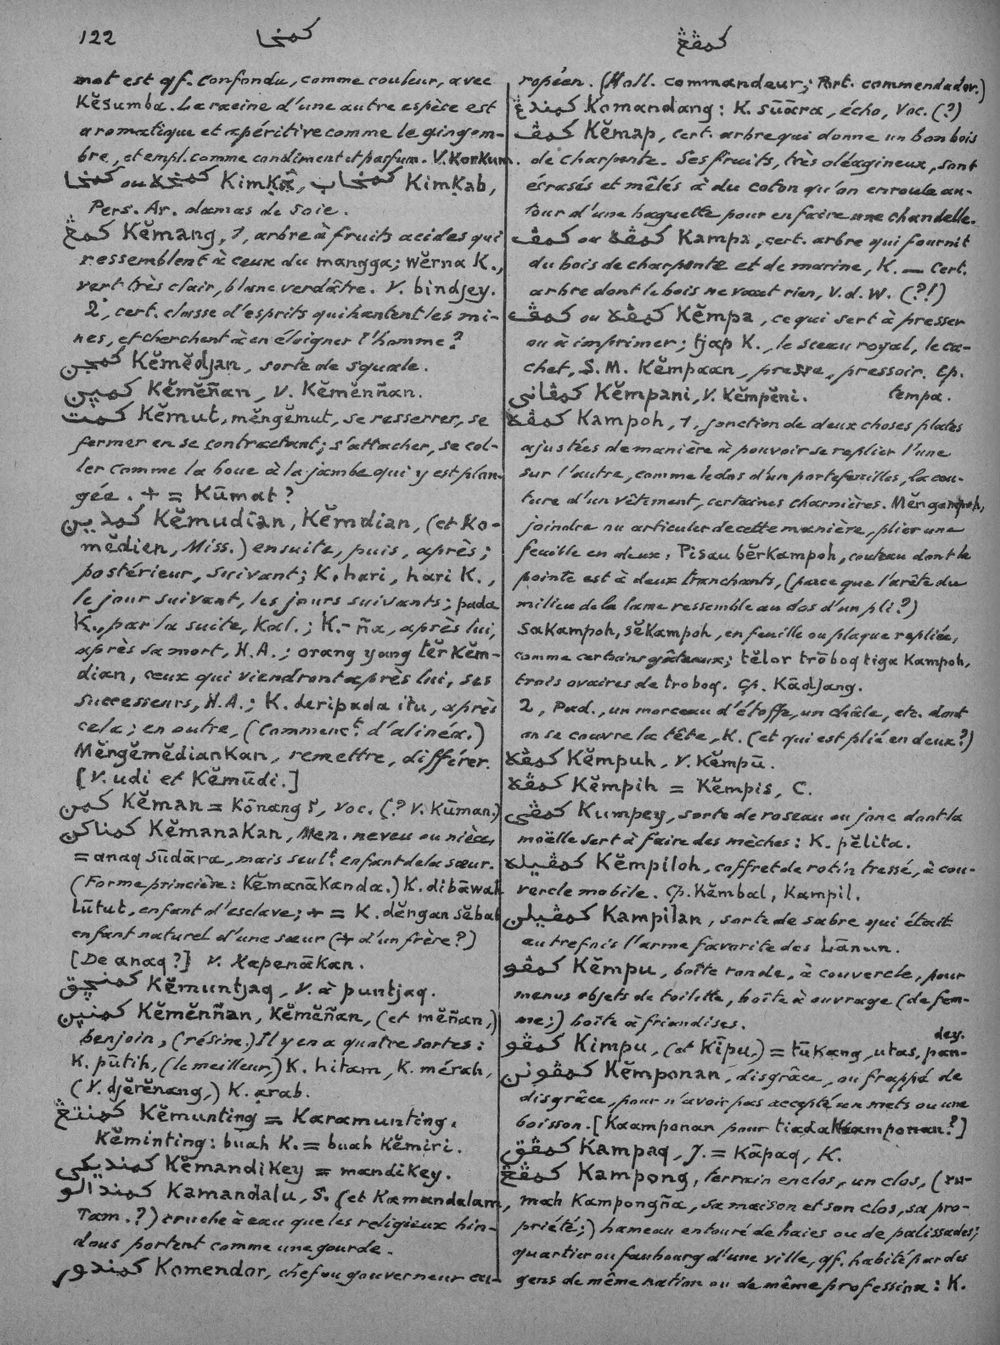 122
كمخا
كمڤڠ
mot est qf. confondu, comme couleur, avec
Kĕsumba. La racine d'une autre espèce est
aromatique et apéritive comme le gingem-
bre, et empl. comme condiment et parfum. V. Konkum.
كمخا ou كمخه Kimkā, كمخاب Kimkab,
Pers. Ar. damas de soie.
كمڠ Kĕmang, 1, arbre à fruits acides qui
ressemblent à ceux du mangga; wĕrna K.,
vert très clair, blanc verdâtre. V. bindjey.
2, cert. classe d'esprits qui hantent les mi-
nes, et cherchent à en éloigner l'homme?
كمجن Kĕmĕdjan, sorte de squale.
كمين Kĕmĕñan, V. Kĕmĕnñan.
كمت Kĕmut, mĕngĕmut, se resserrer, se
fermer en se contractant; s'attacher, se col-
ler comme la boue à la jambe qui y est plon-
gée. + = Kūmat?
كمدين Kĕmudīan, Kĕmdian, (et Ko-
mĕdien, Miss.) ensuite, puis, après;
postérieur, suivant; K. hari, hari K.,
le jour suivant, les jours suivants; pada
K., par la suite, Kal.; K.-ña, après lui,
après sa mort, H.A.; orang yang tĕr Kĕm-
dian, ceux qui viendront après lui, ses
successeurs, H.A.; K. deripada itu, après
cela; en outre, (Commenc.t d'alinéa.)
Mĕngĕmĕdiankan, remettre, différer.
[V. udi et Kĕmūdi.]
كمن Kĕman = Kōnang?, Voc. (? V. Kūman.)
كمناكن Kĕmanakan, Men. neveu ou nièce,
= anaq sūdāra, mais seul.t enfant de la sœur.
(Forme princière: Kĕmanākanda.) K. dibāwah
lūtut, enfant d'esclave; + = K. dĕngan sĕbab
enfant naturel d'une sœur (+ d'un frère?)
[De anaq?] V. Kapenākan.
كمنچق Kĕmuntjaq, V. à puntjaq.
كمنين Kĕmĕnñan, Kĕmĕñan, (et mĕñan,)
benjoin, (résine.) Il y en a quatre sortes:
K. pūtih, (le meilleur,) K. hitam, K. mérah,
(V. djĕrĕnang,) K. arab.
كمنتڠ Kĕmunting = Karamunting.
Kĕminting: buah K. = buah Kĕmiri.
كمنديكي Kĕmandikey = mandikey.
كمندالو Kamandalu, S. (et Kamandalam,
Tam.?) cruche à eau que les religieux hin-
dous portent comme une gourde.
كمندور Komendor, chef ou gouverneur eu-
ropéen. (Holl. commandeur; Port. commendador.)
كمندڠ Komandang: K. sūāra, écho, Voc. (?)
كمڤ Kĕmap, cert. arbre qui donne un bon bois
de charpente. Ses fruits, très oléagineux, sont
écrasés et mêlés à du coton qu'on enroule au-
tour d'une baguette pour en faire une chandelle.
كمڤ ou كمڤه Kampa, cert. arbre qui fournit
du bois de charpente et de marine, K. — Cert.
arbre dont le bois ne vaut rien, V.d.W. (?!)
كمڤ ou كمڤه Kĕmpa, ce qui sert à presser
ou à imprimer; tjap K., le sceau royal, le ca-
chet, S.M. Kĕmpaan, presse, pressoir. Cp.
tempa.
كمڤاني Kĕmpani, V. Kĕmpĕni.
كمڤه Kampoh, 1, jonction de deux choses plates
ajustées de manière à pouvoir se replier l'une
sur l'autre, comme le dos d'un portefeuilles, la cou-
ture d'un vêtement, certaines charnières. Mĕngampoh,
joindre ou articuler de cette manière, plier une
feuille en deux; Pisau bĕrkampoh, couteau dont la
pointe est à deux tranchants, (parce que l'arête du
milieu de la lame ressemble au dos d'un pli?)
Sakampoh, sĕkampoh, en feuille ou plaque repliée,
comme certains gâteaux; tĕlor trōboq tiga kampoh,
trois ovaires de troboq. Cp. Kādjang.
2, Pad., un morceau d'étoffe, un châle, etc. dont
on se couvre la tête, K. (et qui est plié en deux?)
كمڤه Kĕmpuh, V. Kĕmpū.
كمڤه Kĕmpih = Kĕmpis, C.
كمڤي Kumpey, sorte de roseau ou jonc dont la
moëlle sert à faire des mèches: K. pĕlita.
كمڤيله Kĕmpiloh, coffret de rotin tressé, à cou-
vercle mobile. Cp. Kĕmbal, Kampil.
كمڤيلن Kampilan, sorte de sabre qui était
autrefois l'arme favorite des Lānun.
كمڤو Kĕmpu, boîte ronde, à couvercle, pour
menus objets de toilette, boîte à ouvrage (de fem-
me;) boîte à friandises.
كمڤو Kimpu, (et Kīpu,) = tūkang, utas, pan-
dey.
كمڤونن Kĕmponan, disgrâce, ou frappé de
disgrâce, pour n'avoir pas accepté un mets ou une
boisson. [Kaamponan pour tiada Kaamponan?]
كمڤق Kampaq, J. = Kāpaq, K.
كمڤڠ Kampong, terrain enclos, un clos, (ru-
mah Kampongña, sa maison et son clos, sa pro-
priété;) hameau entouré de haies ou de palissades;
quartier ou faubourg d'une ville, qf. habité par des
gens de même nation ou de même profession: K.